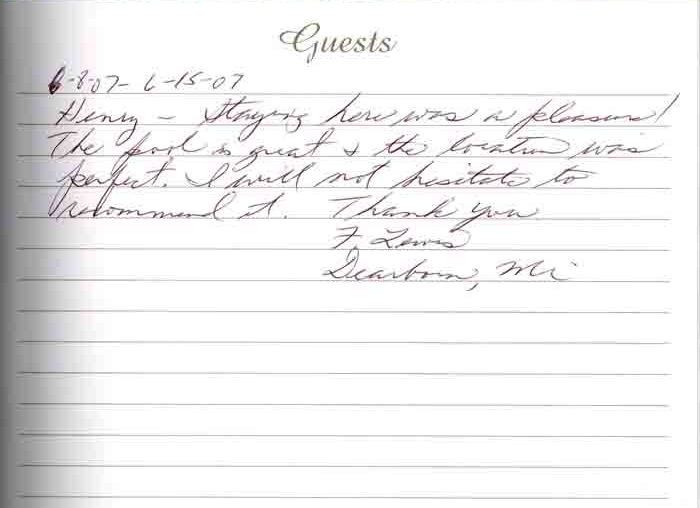 Guests
6-8-07- 6-15-07
Henry - Staying here was a pleasure!
The pool is great & the location was
perfect. I will not hesitate to
recommend it. Thank you
F. Lewis
Dearborn, Mi